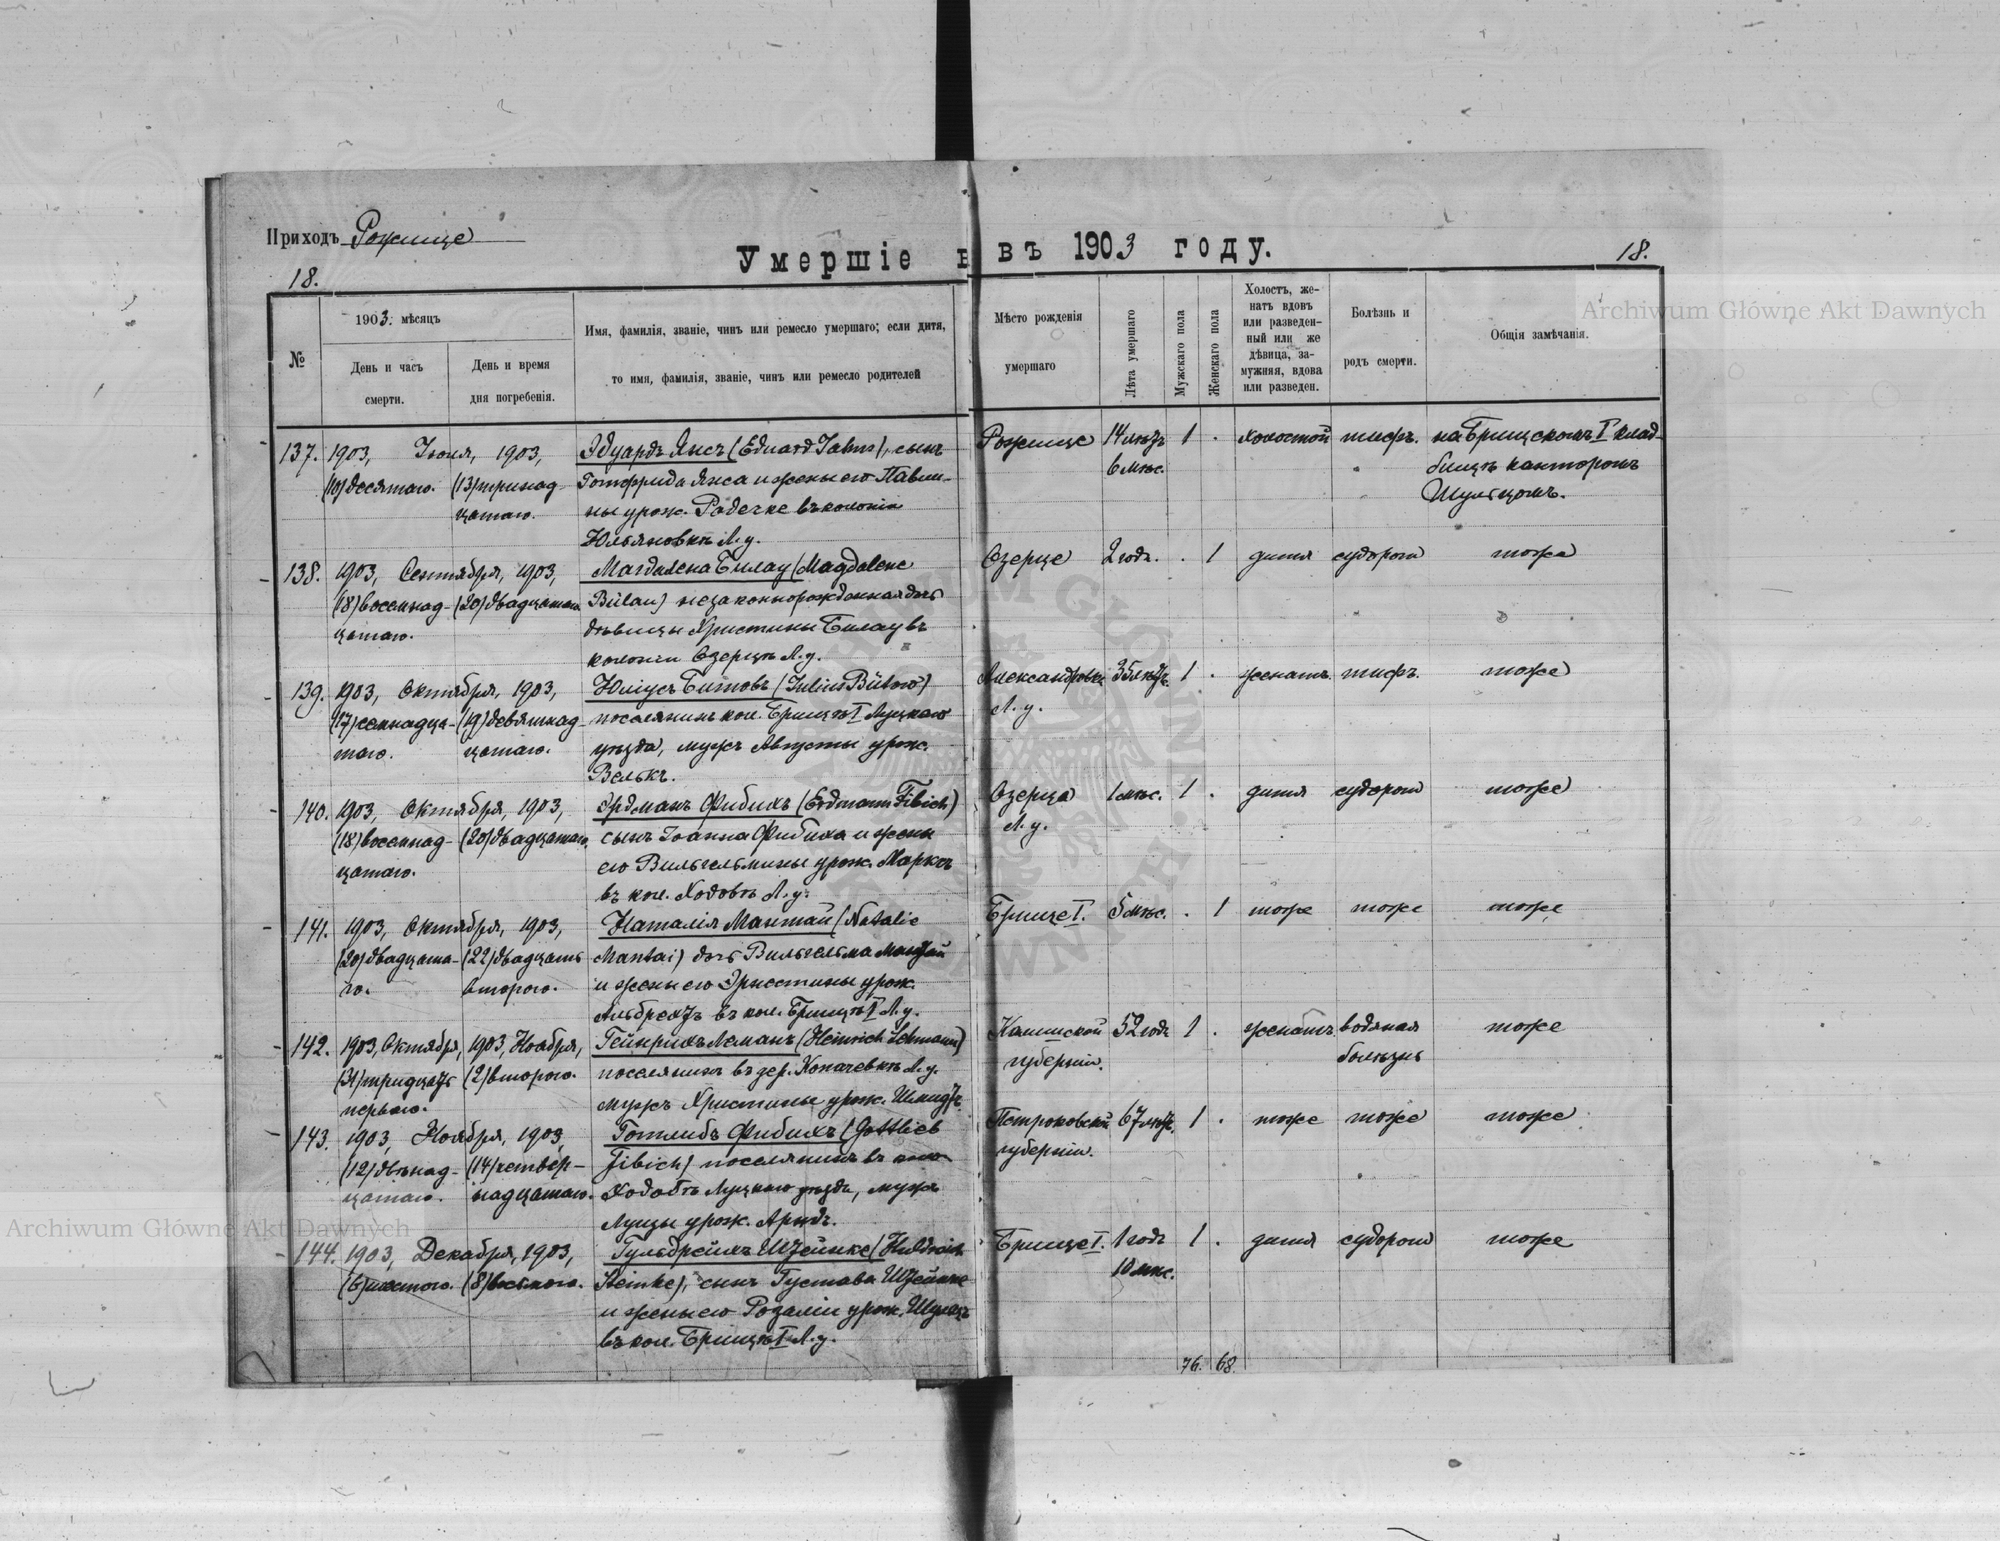 Приходъ Рожище
Умершіе въ 1903 году.
18.
18.
№
1903. мѣсяцъ
День и часъ
смерти.
День и время
дня погребенія.
Имя, фамилія, званіе, чинъ или ремесло умершаго; если дитя,
то имя, фамилія, званіе, чинъ или ремесло родителей
Мѣсто рожденія
умершаго
Лѣта умершаго
Мужскаго пола
Женскаго пола
Холостъ, же-
натъ вдовъ
или разведен-
ный или же
дѣвица, за-
мужняя, вдова
или разведен.
Болѣзнь и
родъ смерти.
Общія замѣчанія.
137. 1903, Іюня, 1903, Эдуардъ Янсъ (Eduard Jahns), сынъ Рожище 14 лѣтъ 1 . холостой тифъ. на Брищскомъ I клад-
(10) десятаго. (13) тринад- Готфрида Янса и жены его Павли- 6 мѣс. бищѣ канторомъ
цатаго. ны урож. Радечке въ колоніи Шульцомъ.
Юльяновкѣ Л. у.
138. 1903, Сентября, 1903, Магдалена Билау (Magdalene Озерце 2 годъ. . 1 дитя судорги тоже
(18) восемнад- (20) двадцатаго. Bülau) незаконнорожденная дочь
цатаго. дѣвицы Христины Билау въ
колоніи Озерцѣ Л. у.
139. 1903, Октября, 1903, Юліусъ Битовъ (Julius Bütow) Александровка 35 лѣтъ. 1 . женатъ тифъ. тоже
(17) семнадца- (19) девятнад- поселянинъ кол. Брищѣ I Луцкаго Л. у.
таго. цатаго. уѣзда, мужъ Августы урож.
Велькъ.
140. 1903, Октября, 1903, Эрдманъ Фибихъ (Erdmann Fibich) Озерца 1 мѣс. 1 . дитя судорги тоже
(18) восемнад- (20) двадцатаго. сынъ Іоанна Фибиха и жены Л. у.
цатаго. его Вильгельмины урож. Маркъ
въ кол. Ходовѣ Л. у.
141. 1903, Октября, 1903, Наталія Мантай (Natalie Брище I. 5 мѣс. . 1 тоже тоже тоже
(20) двадцата- (22) двадцать Mantai) дочь Вильгельма Мантай
го. второго. и жены его Эрнстины урож.
Альбрехтъ въ кол. Брищѣ I Л. у.
142. 1903, Октября, 1903, Ноября, Гейнрихъ Леманъ (Heinrich Lehmann) Калишской 52 годъ 1 . женатъ водяная тоже
(31) тридцать (2) второго. поселянинъ въ дер. Копачевкѣ Л. у. губерніи. болѣзнь
перваго. мужъ Христины урож. Шмидтъ.
143. 1903, Ноября, 1903, Готлибъ Фибихъ (Gottlieb Петроковской 67 лѣтъ. 1 . тоже тоже тоже
(12) двѣнад- (14) четыр- Fibich) поселянинъ въ губерніи.
цатаго. надцатаго. Ходовѣ Луцкаго уѣзда, мужъ
Луизы урож. Арндъ.
144. 1903, Декабря, 1903, Гульдрейхъ Штейнке (Huldreich Брище I. 1 годъ 1 . дитя судорги тоже
(6) шестого. (8) восьмого. Steinke), сынъ Густава Штейнке 10 мѣс.
и жены его Розаліи урож. Шульцъ
въ кол. Брищѣ I Л. у.
76. 68.
Archiwum Główne Akt Dawnych
Archiwum Główne Akt Dawnych